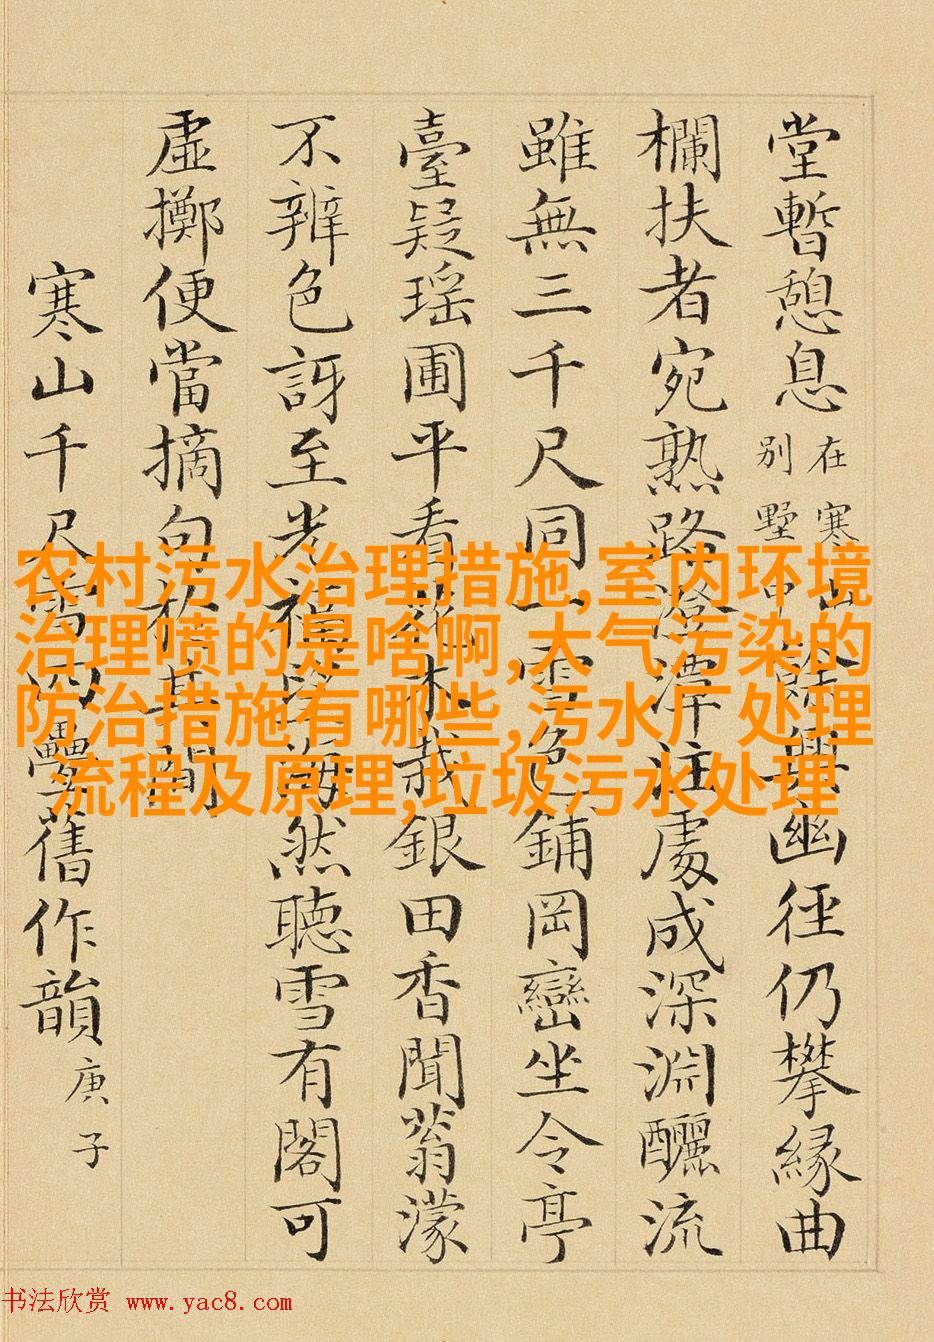 堂暫憩息
在寒山
別墅中
餘興幽徑仍攀縁曲
欄扶者宛熟路澄潭注處成深淵釃流
雖無三千尺同一雪色鋪岡巒坐令亭
臺疑瑶圃平看木栽銀田香聞蓊濛
不辨色訝至光福海然聽雪有閣可
虛擲便當摘句於其間
寒山千尺雪四疊舊作韻
庚子
农村污水治理措施,室内环境
治理喷的是啥啊,大气污染的
防治措施有哪些,污水厂处理
流程及原理,垃圾污水处理
书法欣赏 www.yac8.com